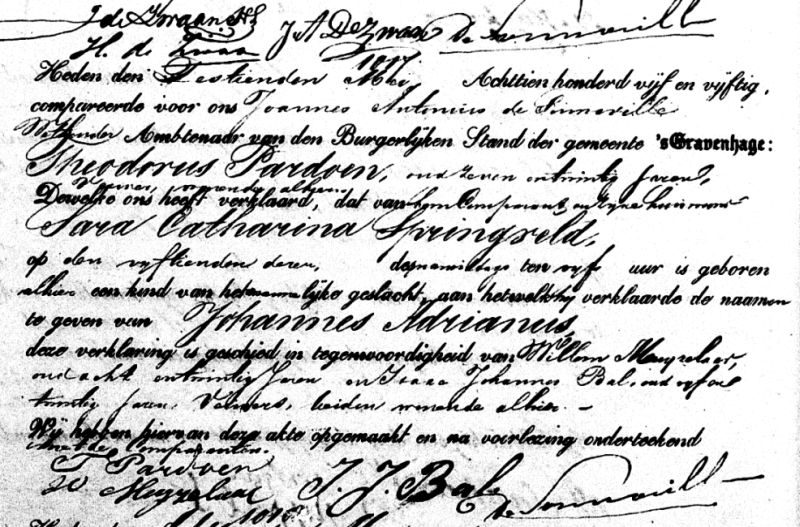 J de Zwaan
H. de Zwaa J A De Zwaan de Sonnaville
1017
Heden den Zestienden Mei, Achttien honderd vijf en vijftig,
compareerde voor ons Joannes Antonius de Sonnaville
Wethouder Ambtenaar van den Burgerlijken Stand der gemeente 's Gravenhage:
Theodorus Pardoen, oud zeven entwintig Jaren,
Verwer, wonende alhier
Dewelke ons heeft verklaard, dat van hem Comparant en zijne huisvrouw
Sara Catharina Springveld,
op den vijftienden dezer, desnamiddags ten vijf uur is geboren
alhier een kind van het mannelijke geslacht, aan hetwelk hij verklaarde de naamen
te geven van Johannes Adrianus,
deze verklaring is geschied in tegenwoordigheid van Willem Meyzelaar,
oud acht entwintig Jaren en Isaac Johannes Bal, oud vijf en
twintig Jaren, Verwers, beiden wonende alhier. —
Wij hebben hiervan deze akte opgemaakt en na voorlezing onderteekend
met de Comparanten.
T Pardoen
W Meyzelaar I. J. Bal de Sonnaville
1018